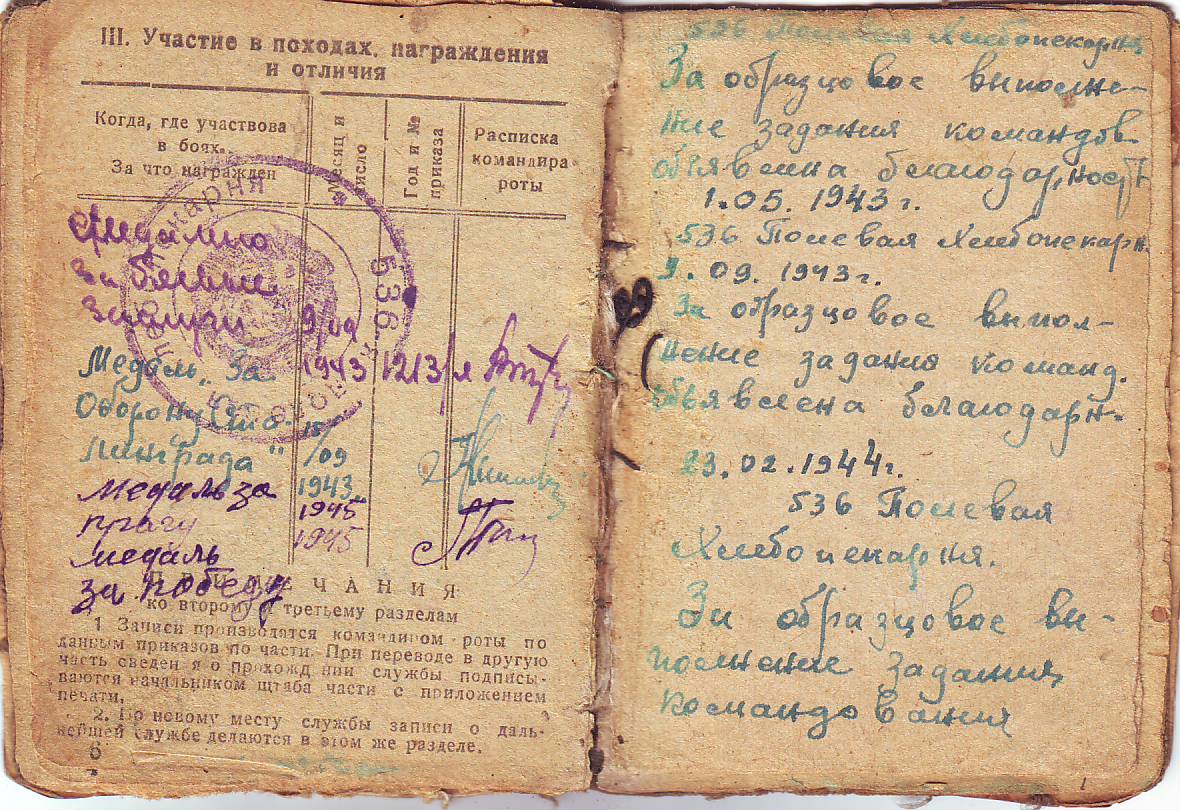 III. Участие в походах, награждения
и отличия
Когда, где участвова
в боях.
За что награжден
Месяц и
число
Год и №
приказа
Расписка
командира
роты
536
Медалью
За боевые
Заслуги 9/09
Медаль „За 1943 1213/л
Оборону Ста- 15
линграда" /09
1943
медаль за 1945
прагу 1945
медаль
за победу
ЧАНИЯ
ко второму и третьему разделам
1 Записи производятся командиром роты по
данным приказов по части. При переводе в другую
часть сведен я о прохожд нии службы подписы-
ваются начальником штаба части с приложением
печати.
2. По новому месту службы записи о даль-
нейшей службе делаются в этом же разделе.
6
536 Полевая Хлебопекарня
За образцовое выполне-
ние задания командов.
объявлена благодарность
1.05. 1943 г.
536 Полевая Хлебопекарн.
9.09. 1943 г.
За образцовое выпол-
нение задания команд.
объявлена благодарн-
23.02.1944г.
536 Полевая
Хлебопекарня.
За образцовое вы-
полнение задания
командования